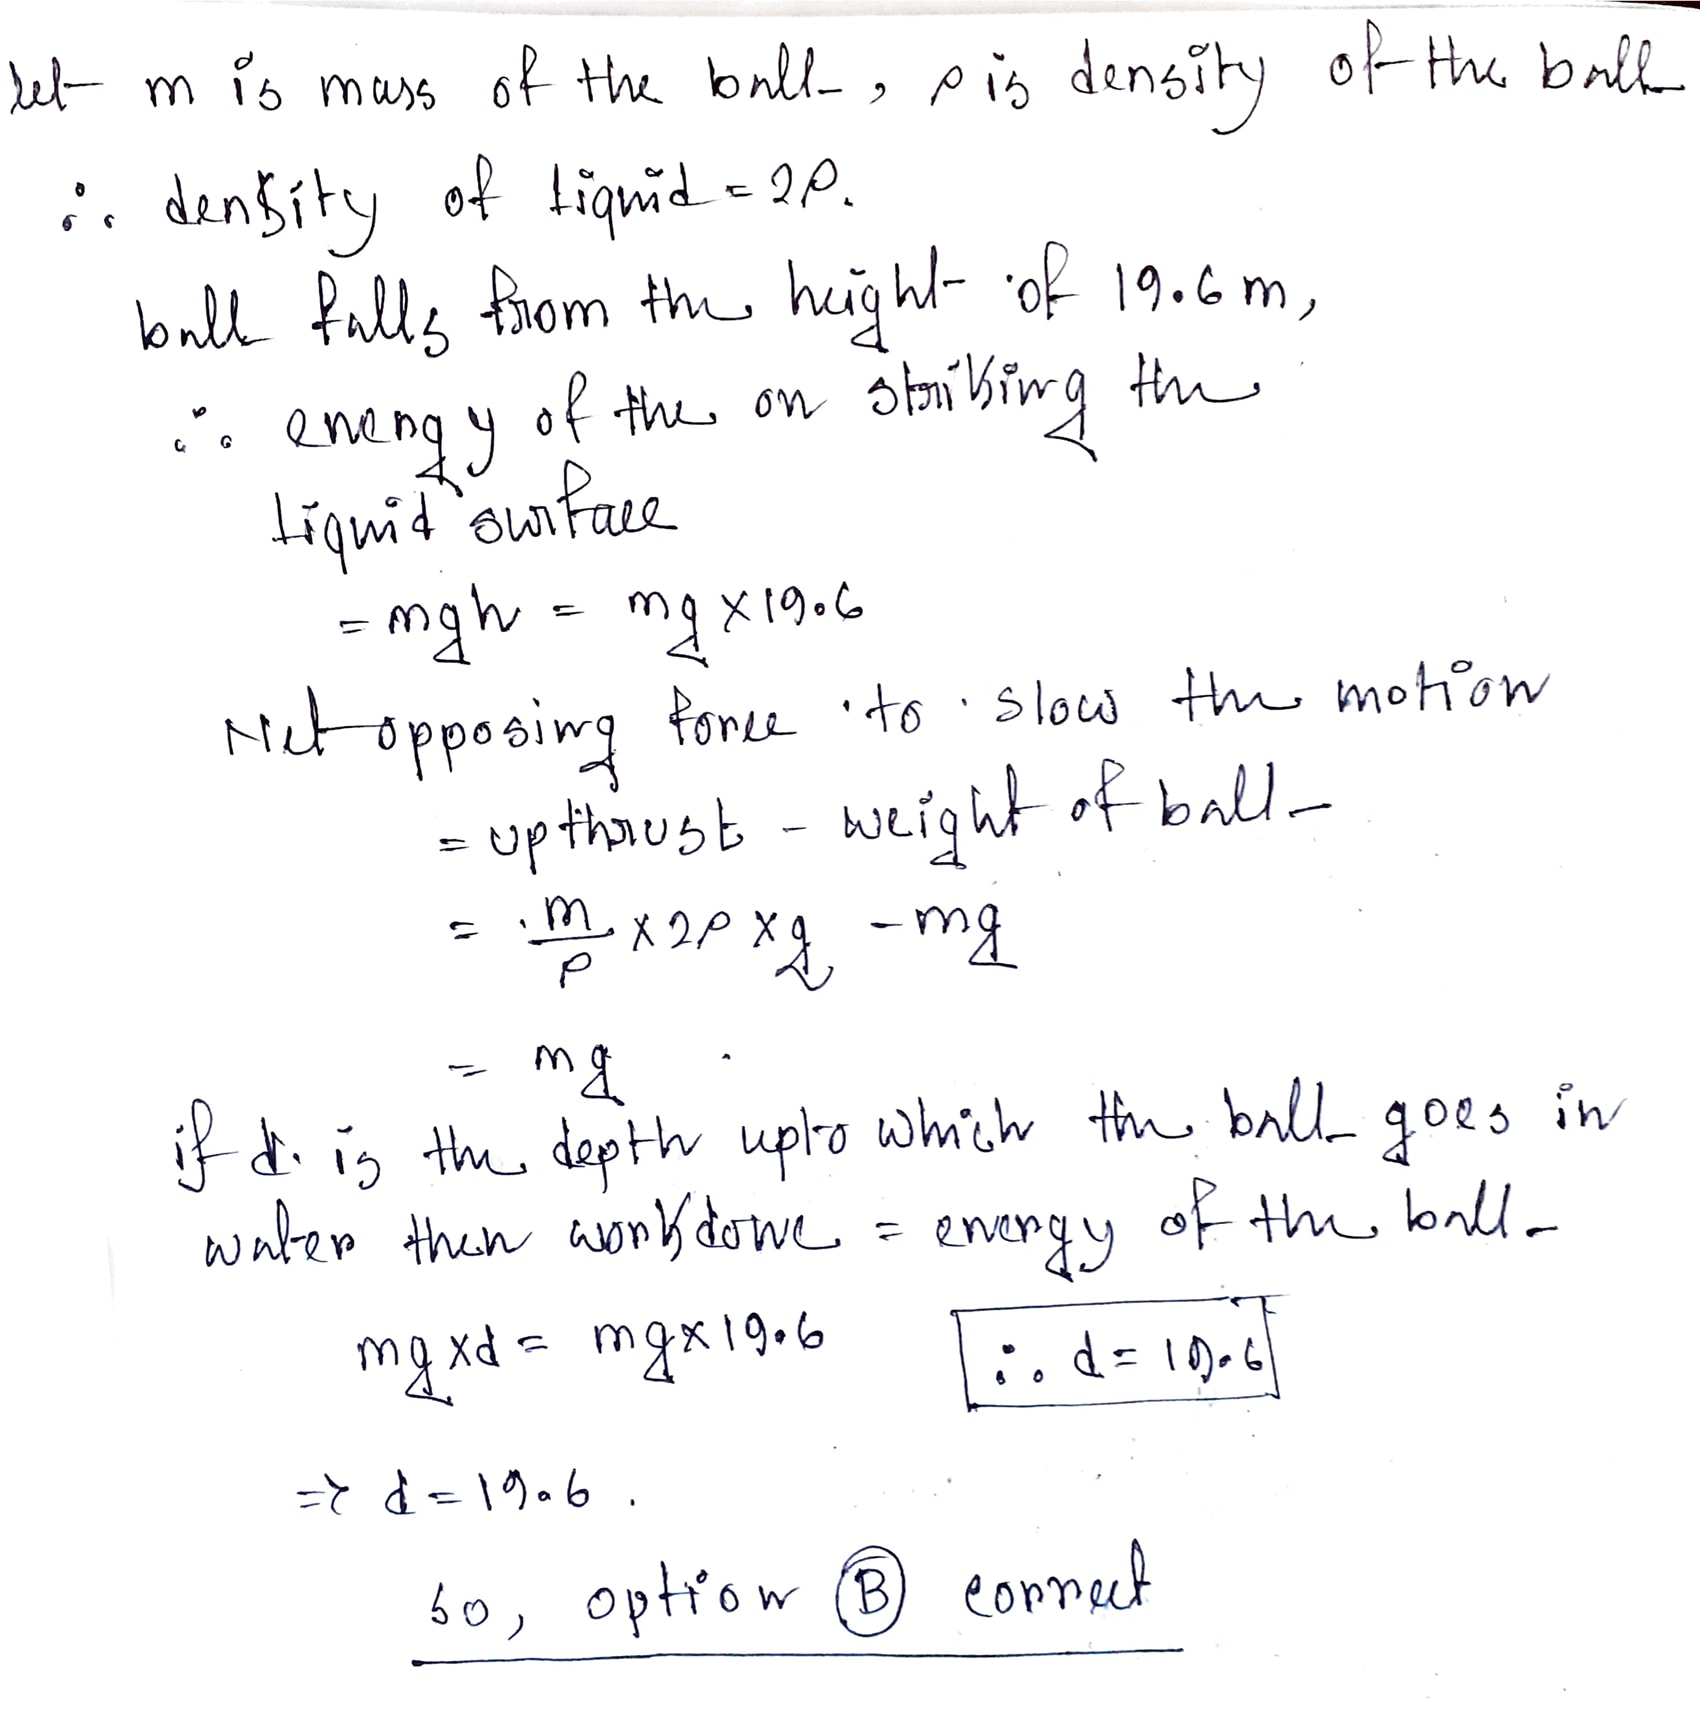 let m is mass of the ball, ρ is density of the ball
∴ density of liquid = 2ρ.
ball falls from the height of 19.6 m,
∴ energy of the on striking the
liquid surface
= mgh = mg × 19.6
Net opposing force to slow the motion
= upthrust - weight of ball
= m/ρ × 2ρ × g - mg
= mg
if d is the depth upto which the ball goes in
water then workdone = energy of the ball
mg × d = mg × 19.6 ∴ d = 19.6
⇒ d = 19.6.
so, option B correct